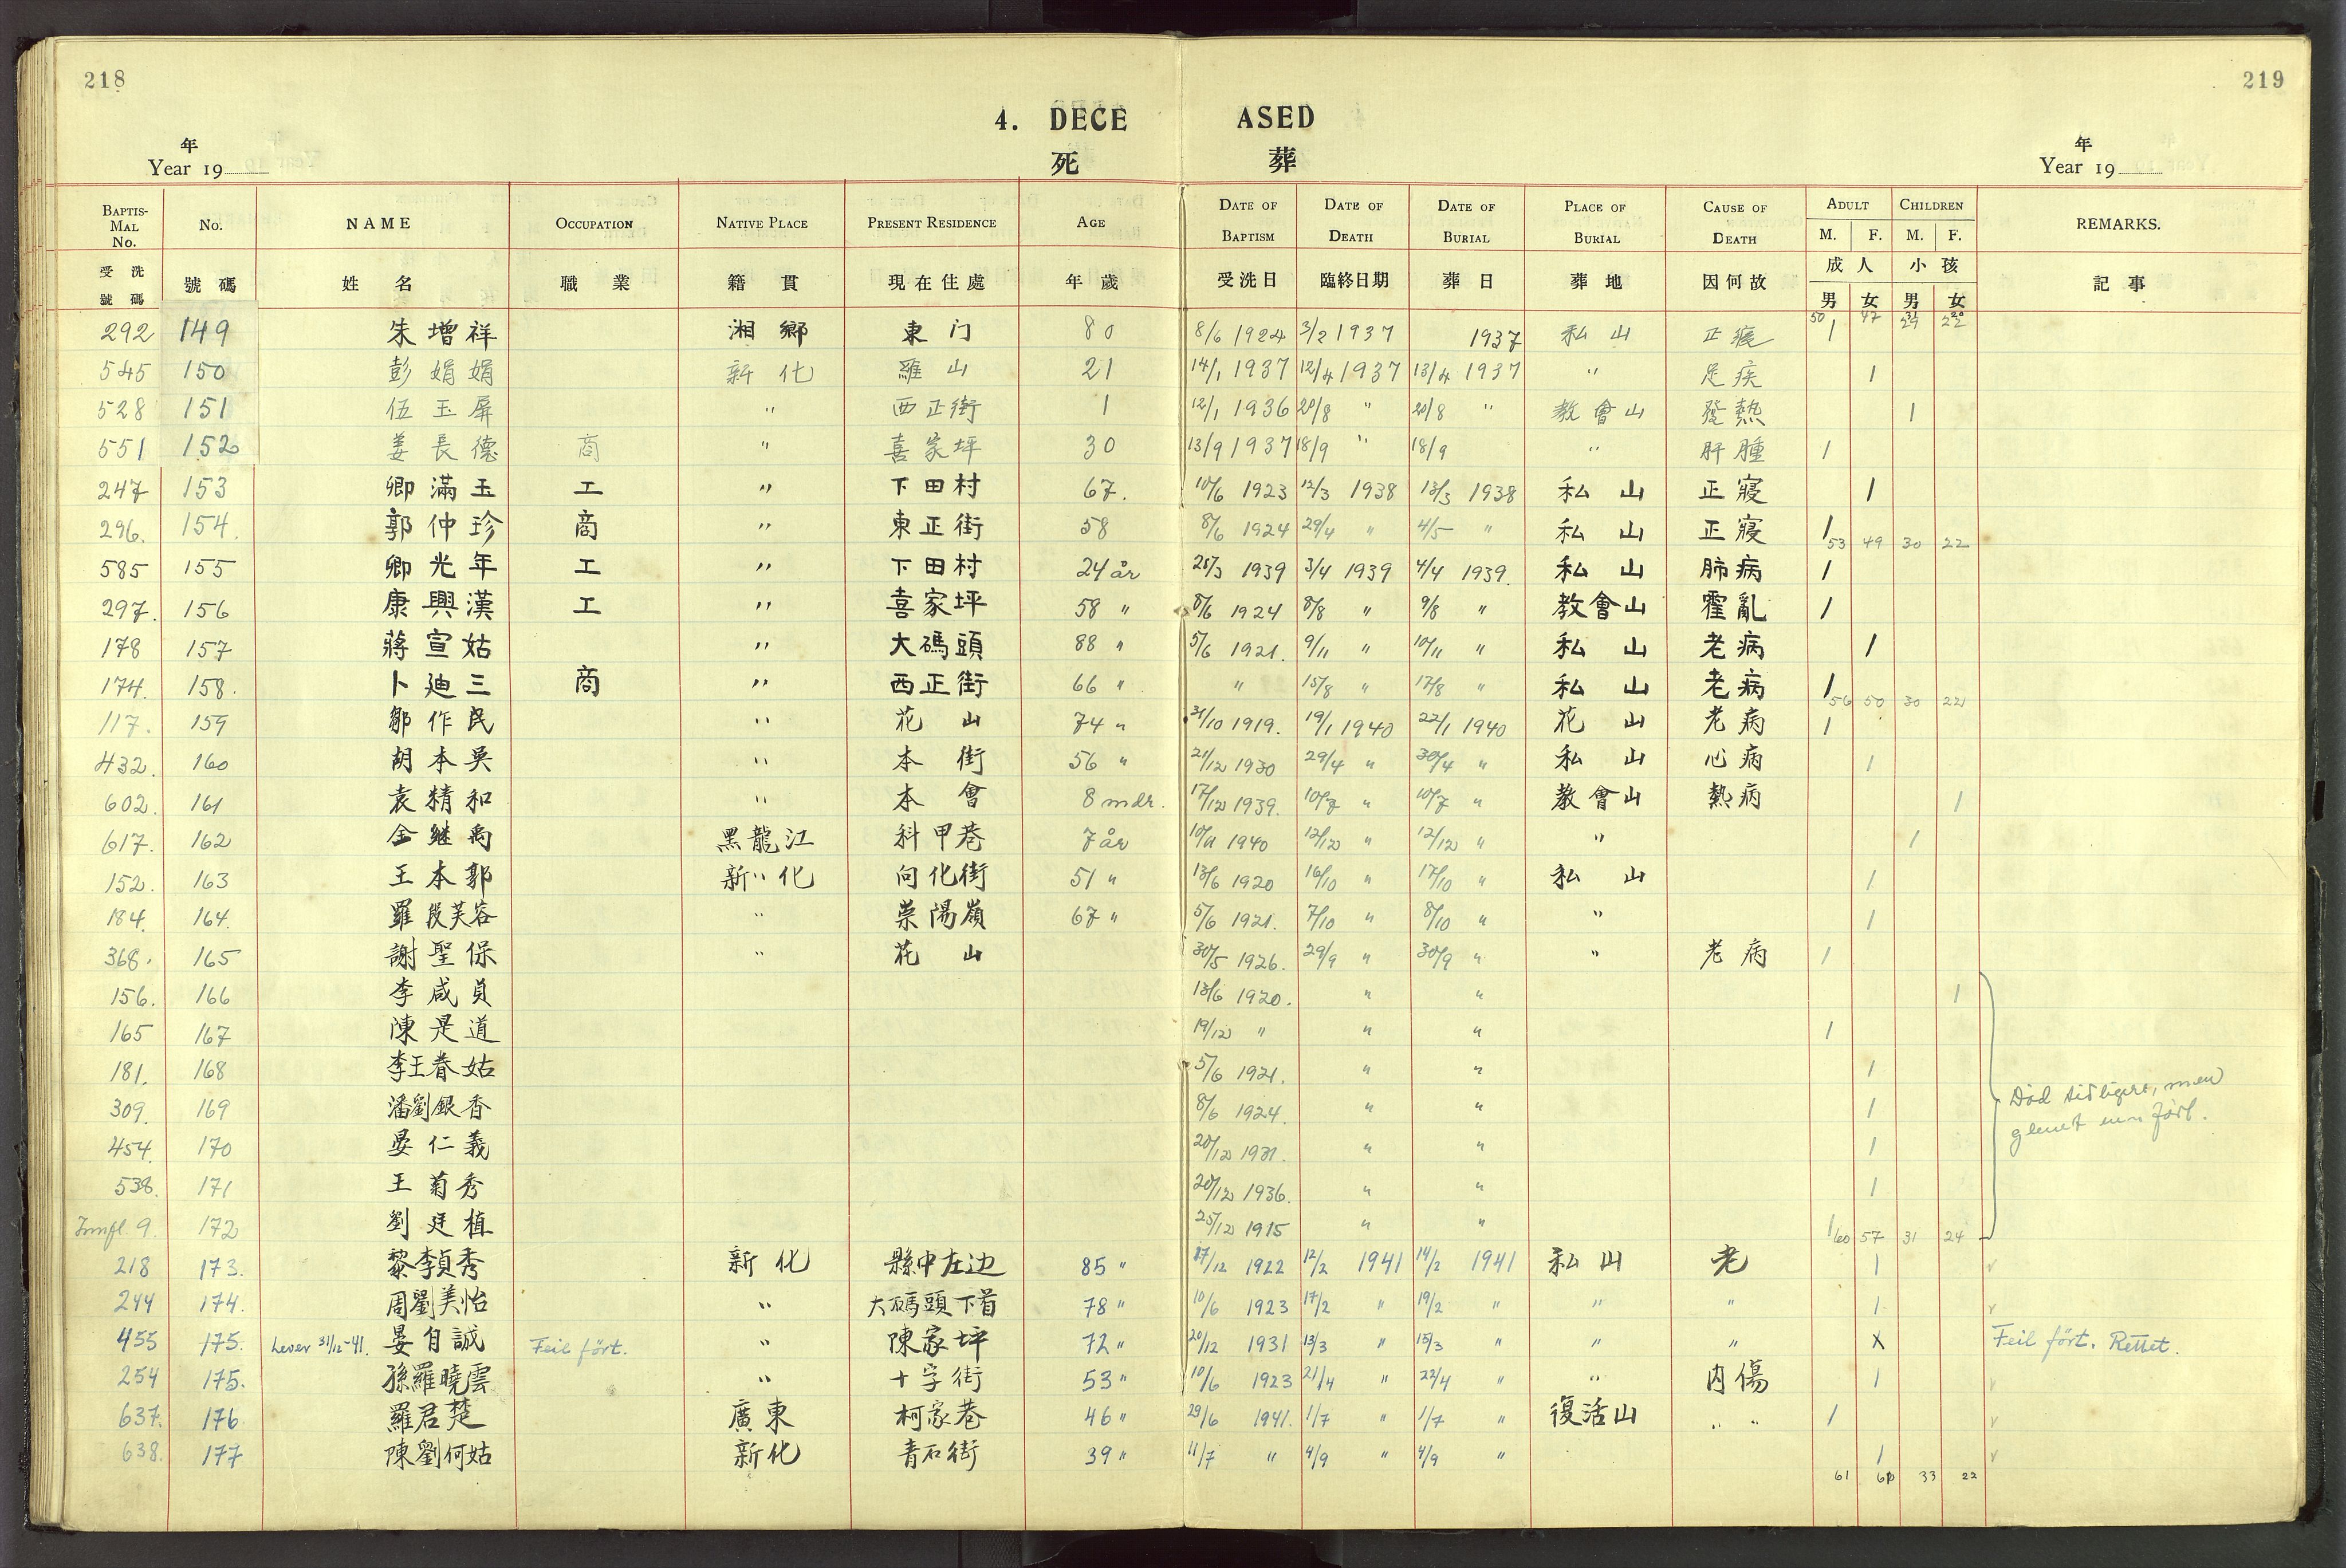 218
219
4. DECE ASED
死 葬
年
Year 19
年
Year 19
BAPTISMAL No. No. NAME OCCUPATION NATIVE PLACE PRESENT RESIDENCE AGE DATE OF BAPTISM DATE OF DEATH DATE OF BURIAL PLACE OF BURIAL CAUSE OF DEATH ADULT M. F. CHILDREN M. F. REMARKS.
受洗號碼 號碼 姓名 職業 籍貫 現在住處 年歲 受洗日 臨終日期 葬日 葬地 因何故 成人 男 女 小孩 男 女 記事
50 47 31 29 20 22
292 149 朱增祥 湘鄉 東门 80 8/6 1924 3/2 1937 1937 私山 正寢 1
545 150 彭娟娟 新化 羅山 21 14/1 1937 12/4 1937 13/4 1937 " 足疾 1
528 151 伍玉屏 " 西正街 1 12/1 1936 20/8 " 20/8 " 教會山 發熱 1
551 152 姜長德 商 " 喜家坪 30 13/9 1937 18/9 " 18/9 " 肝腫 1
247 153 卿滿玉 工 " 下田村 67. 10/6 1923 12/3 1938 13/3 1938 私山 正寢 1
296. 154. 郭仲珍 商 " 東正街 58 8/6 1924 29/4 " 4/5 " 私山 正寢 1
53 49 30 22
585 155 卿光年 工 " 下田村 24 år 25/3 1939 3/4 1939 4/4 1939. 私山 肺病 1
297. 156 康興漢 工 " 喜家坪 58 " 8/6 1924 8/8 " 9/8 " 教會山 霍亂 1
178 157 蔣宣姑 " 大碼頭 88 " 5/6 1921. 9/11 " 10/11 " 私山 老病 1
174. 158. 卜廸三 商 " 西正街 66 " " 15/8 " 17/8 " 私山 老病 1
56 50 30 22
117. 159 鄒作民 " 花山 74 " 31/10 1919. 19/1 1940 22/1 1940 花山 老病 1
432. 160 胡本吳 " 本街 56 " 21/12 1930 29/4 " 30/4 " 私山 心病 1
602. 161 袁精和 " 本會 8 mdr. 17/12 1939. 10/7 " 10/7 " 教會山 熱病 1
617. 162 金継禹 黑龍江 科甲巷 7 år 10/11 1940 12/12 " 12/12 " " 1
152. 163 王本郭 新化 向化街 51 " 13/6 1920 16/10 " 17/10 " 私山 1
184. 164. 羅段芙蓉 " 崇陽嶺 67 " 5/6 1921. 7/10 " 8/10 " " 1
368. 165 謝聖保 " 花山 30/5 1926. 29/9 " 30/9 " " 老病 1
156. 166 李咸貞 13/6 1920. " " 1
165 167 陳是道 19/12 " " " 1
181. 168 李王眷姑 5/6 1921. " " 1
Død tidligere, men
309. 169 潘劉銀香 8/6 1924. " " 1
glemt innført.
454. 170 晏仁義 20/12 1931. " " 1
538. 171 王菊秀 20/12 1936. " " 1
Innfl. 9. 172 劉廷植 25/12 1915 " " 1
60 57 31 24
218 173. 黎李貞秀 新化 縣中左边 85 " 17/12 1922 12/2 1941 14/2 1941 私山 老 1
244 174. 周劉美怡 " 大碼頭下首 78 " 10/6 1923 17/2 " 19/2 " " " 1
455 175. Lever 31/12-41. 晏自誠 Feil ført. " 陳家坪 72 " 20/12 1931 13/3 " 15/3 " " " X Feil ført. Rettet.
254 175. 孫羅曉雲 " 十字街 53 " 10/6 1923 21/4 " 22/4 " " 内傷 1
637. 176 羅君楚 廣東 柯家巷 46 " 29/6 1941. 1/7 " 1/7 " 復活山 " 1
638. 177 陳劉何姑 新化 青石街 39 " 11/7 " 4/9 " 4/9 " 1
61 60 33 22